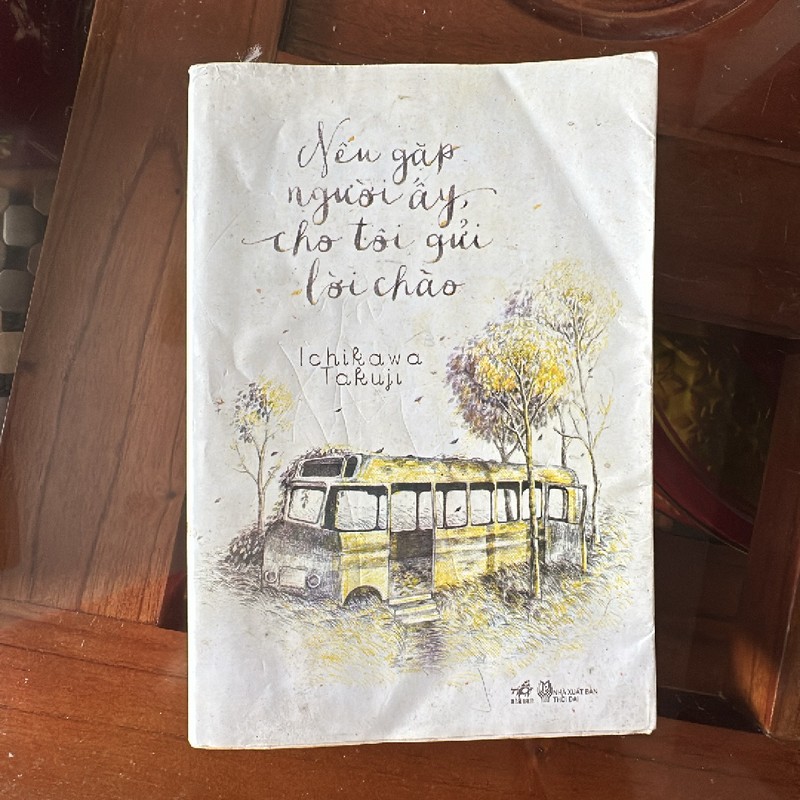 Nếu gặp
người ấy,
cho tôi gửi
lời chào
Ichikawa
Takuji
NHÃ NAM
NHÀ XUẤT BẢN
THỜI ĐẠI